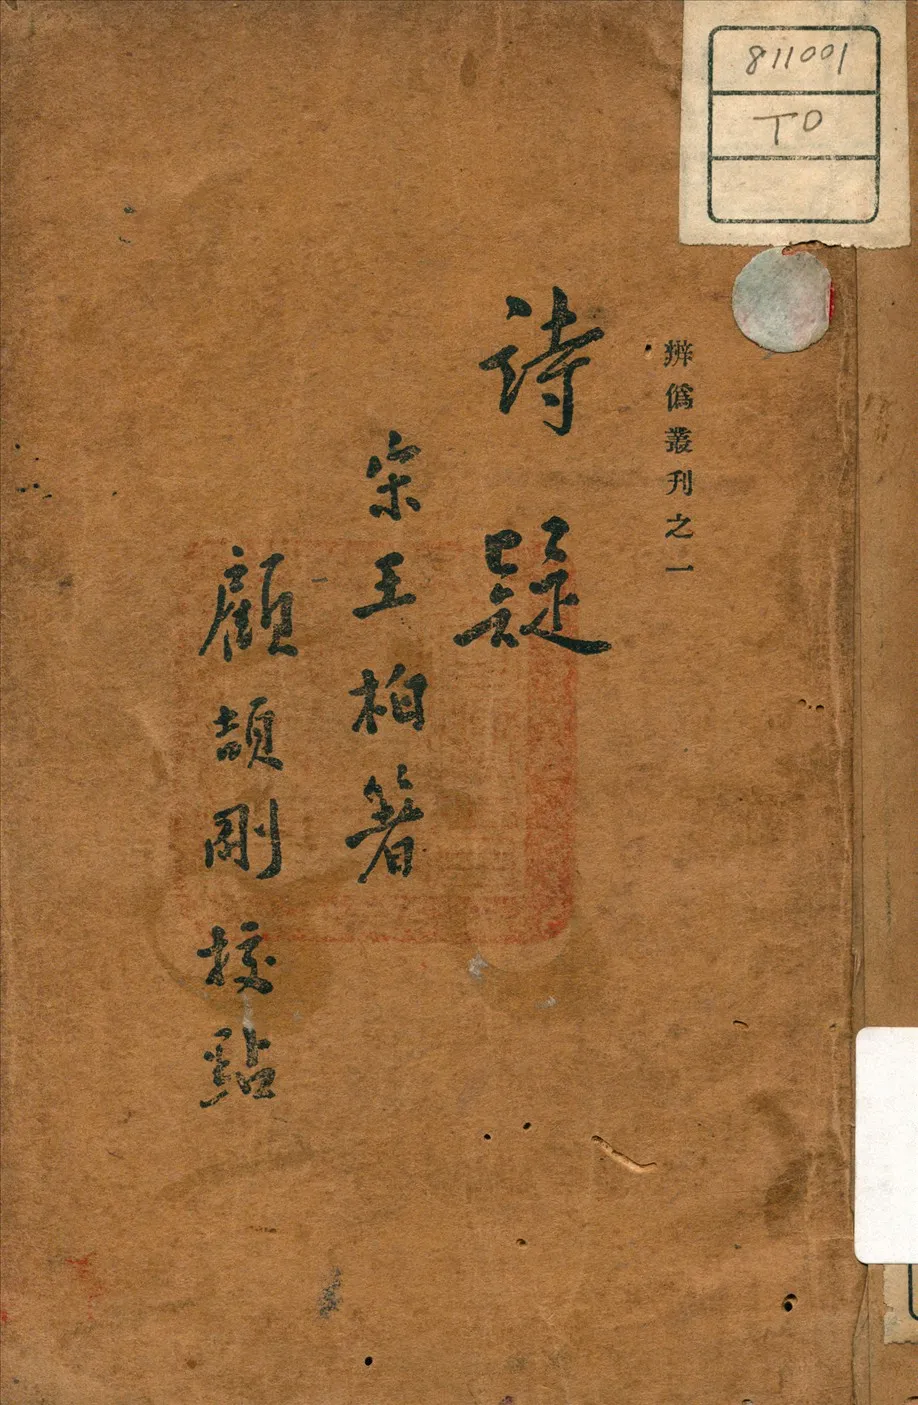 811001
TD
辨僞叢刊之一
詩疑
宋王柏著
顧頡剛校點